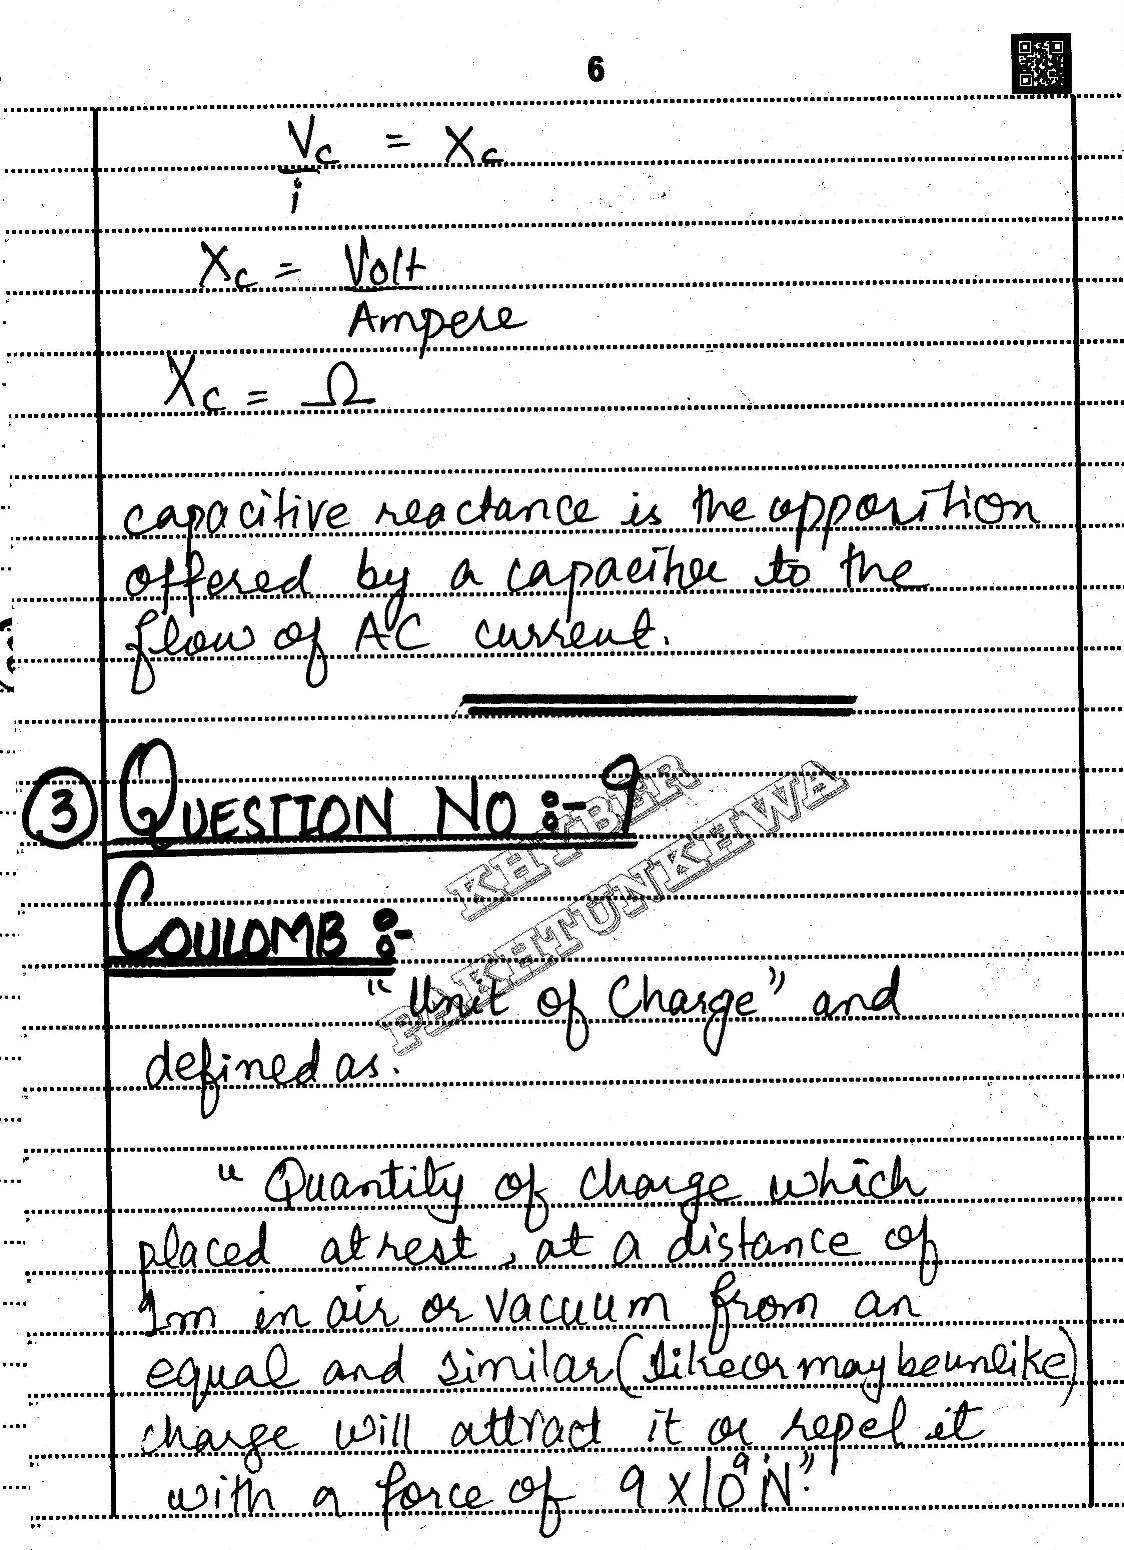 6
Vc = Xc
i
Xc = Volt
Ampere
Xc = Ω
capacitive reactance is the opposition
offered by a capacitor to the
flow of AC current.
3 QUESTION NO :- 9
KHYBER
PAKHTUNKHWA
COULOMB :-
"Unit of Charge" and
defined as.
"Quantity of charge which
placed at rest, at a distance of
1m in air or vacuum from an
equal and similar (like or may be unlike)
charge will attract it or repel it
with a force of 9 x 10⁹ N."